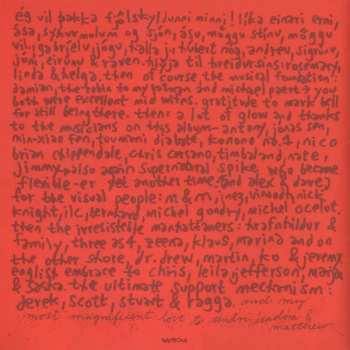 ég vil þakka fjölskyldunni minni! líka einari erni,
ása, sykurmolum og sjón, ásu, möggu stínu, möggu
vil, gabríelu, jógu, halla jú hubert
jóni, eirúnu & raven.
linda & helga, then of course the musical foundation:
damian, the robin to my batman and michael
both were excellent mid wives. gratitude to mark bell
for still being there. then: a lot of glow and thanks
to the musicians on this album - antony, jónas sen,
min-xiao fen, toumani diabate, konono no. 1, nico
brian chippendale, chris corsano, timbaland, nate,
jimmy, also again supernatural spike, who became
flexible-er yet another time, and alex & dave!
for the visual people: m & m, inez, vinoodh, nick
knight, ilc, bernhard, michel gondry, michel ocelot.
then the irresistible manhattaners: hrafnhildur &
family, three as 4, zeena, klaus, marina and on
the other shore, dr. drew, martin, ko & jeremy
english embrace to chris, leila, jefferson,
& sasta. the ultimate support mechanism:
derek, scott, stuart & ragga. and my
most magnificent love to sindri, ísadóra &
matthew